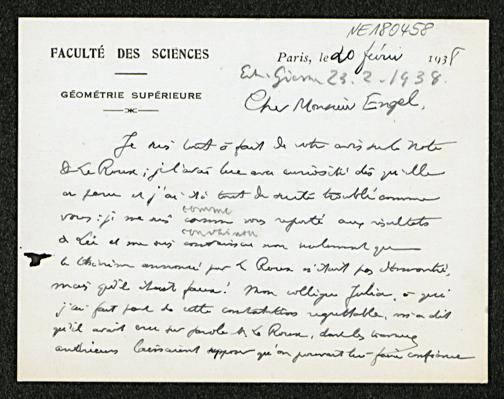 NE180458
FACULTÉ DES SCIENCES
GÉOMÉTRIE SUPÉRIEURE
Paris, le 20 février 1938
23.2-1938.
Cher Monsieur Engel,
Je suis tout à fait de votre avis sur la Note
de Le Roux ; je l'avais lue avec curiosité dès qu'elle
a paru et j'ai été tout de suite troublé comme
comme
vous ; je me suis comme vous reporté aux résultats
convaincu
de Lie et me suis convaincu non seulement que
le théorème annoncé par Le Roux n'était pas démontré,
mais qu'il était faux ! Mon collègue Julia, à qui
j'ai fait part de cette constatation regrettable, m'a dit
qu'il avait cru sur parole M. Le Roux, dont les travaux
antérieurs laissaient supposer qu'on pouvait lui faire confiance